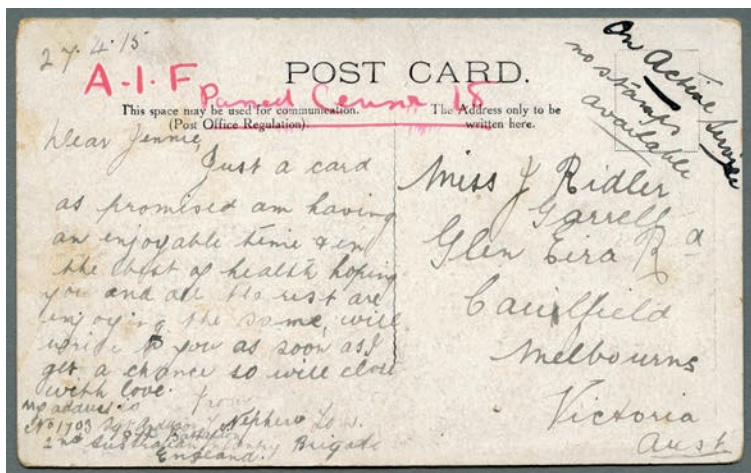 27.4.15
A.I.F
POST CARD.
Passed Censor 15
This space may be used for communication.
(Post Office Regulation).
The Address only to be
written here.
On Active Service
no stamps
available
Dear Jennie
Just a card
as promised am having
an enjoyable time & in
the best of health hoping
you and all the rest are
enjoying the same, will
write to you as soon as I
get a chance so will close
with love.
from
Nephew
My address is
No 1703 Sgt
Battalion
2nd Australian Infantry Brigade
England.
Miss J Ridler
Garrell
Glen Eira Rd
Caulfield
Melbourne
Victoria
Aust